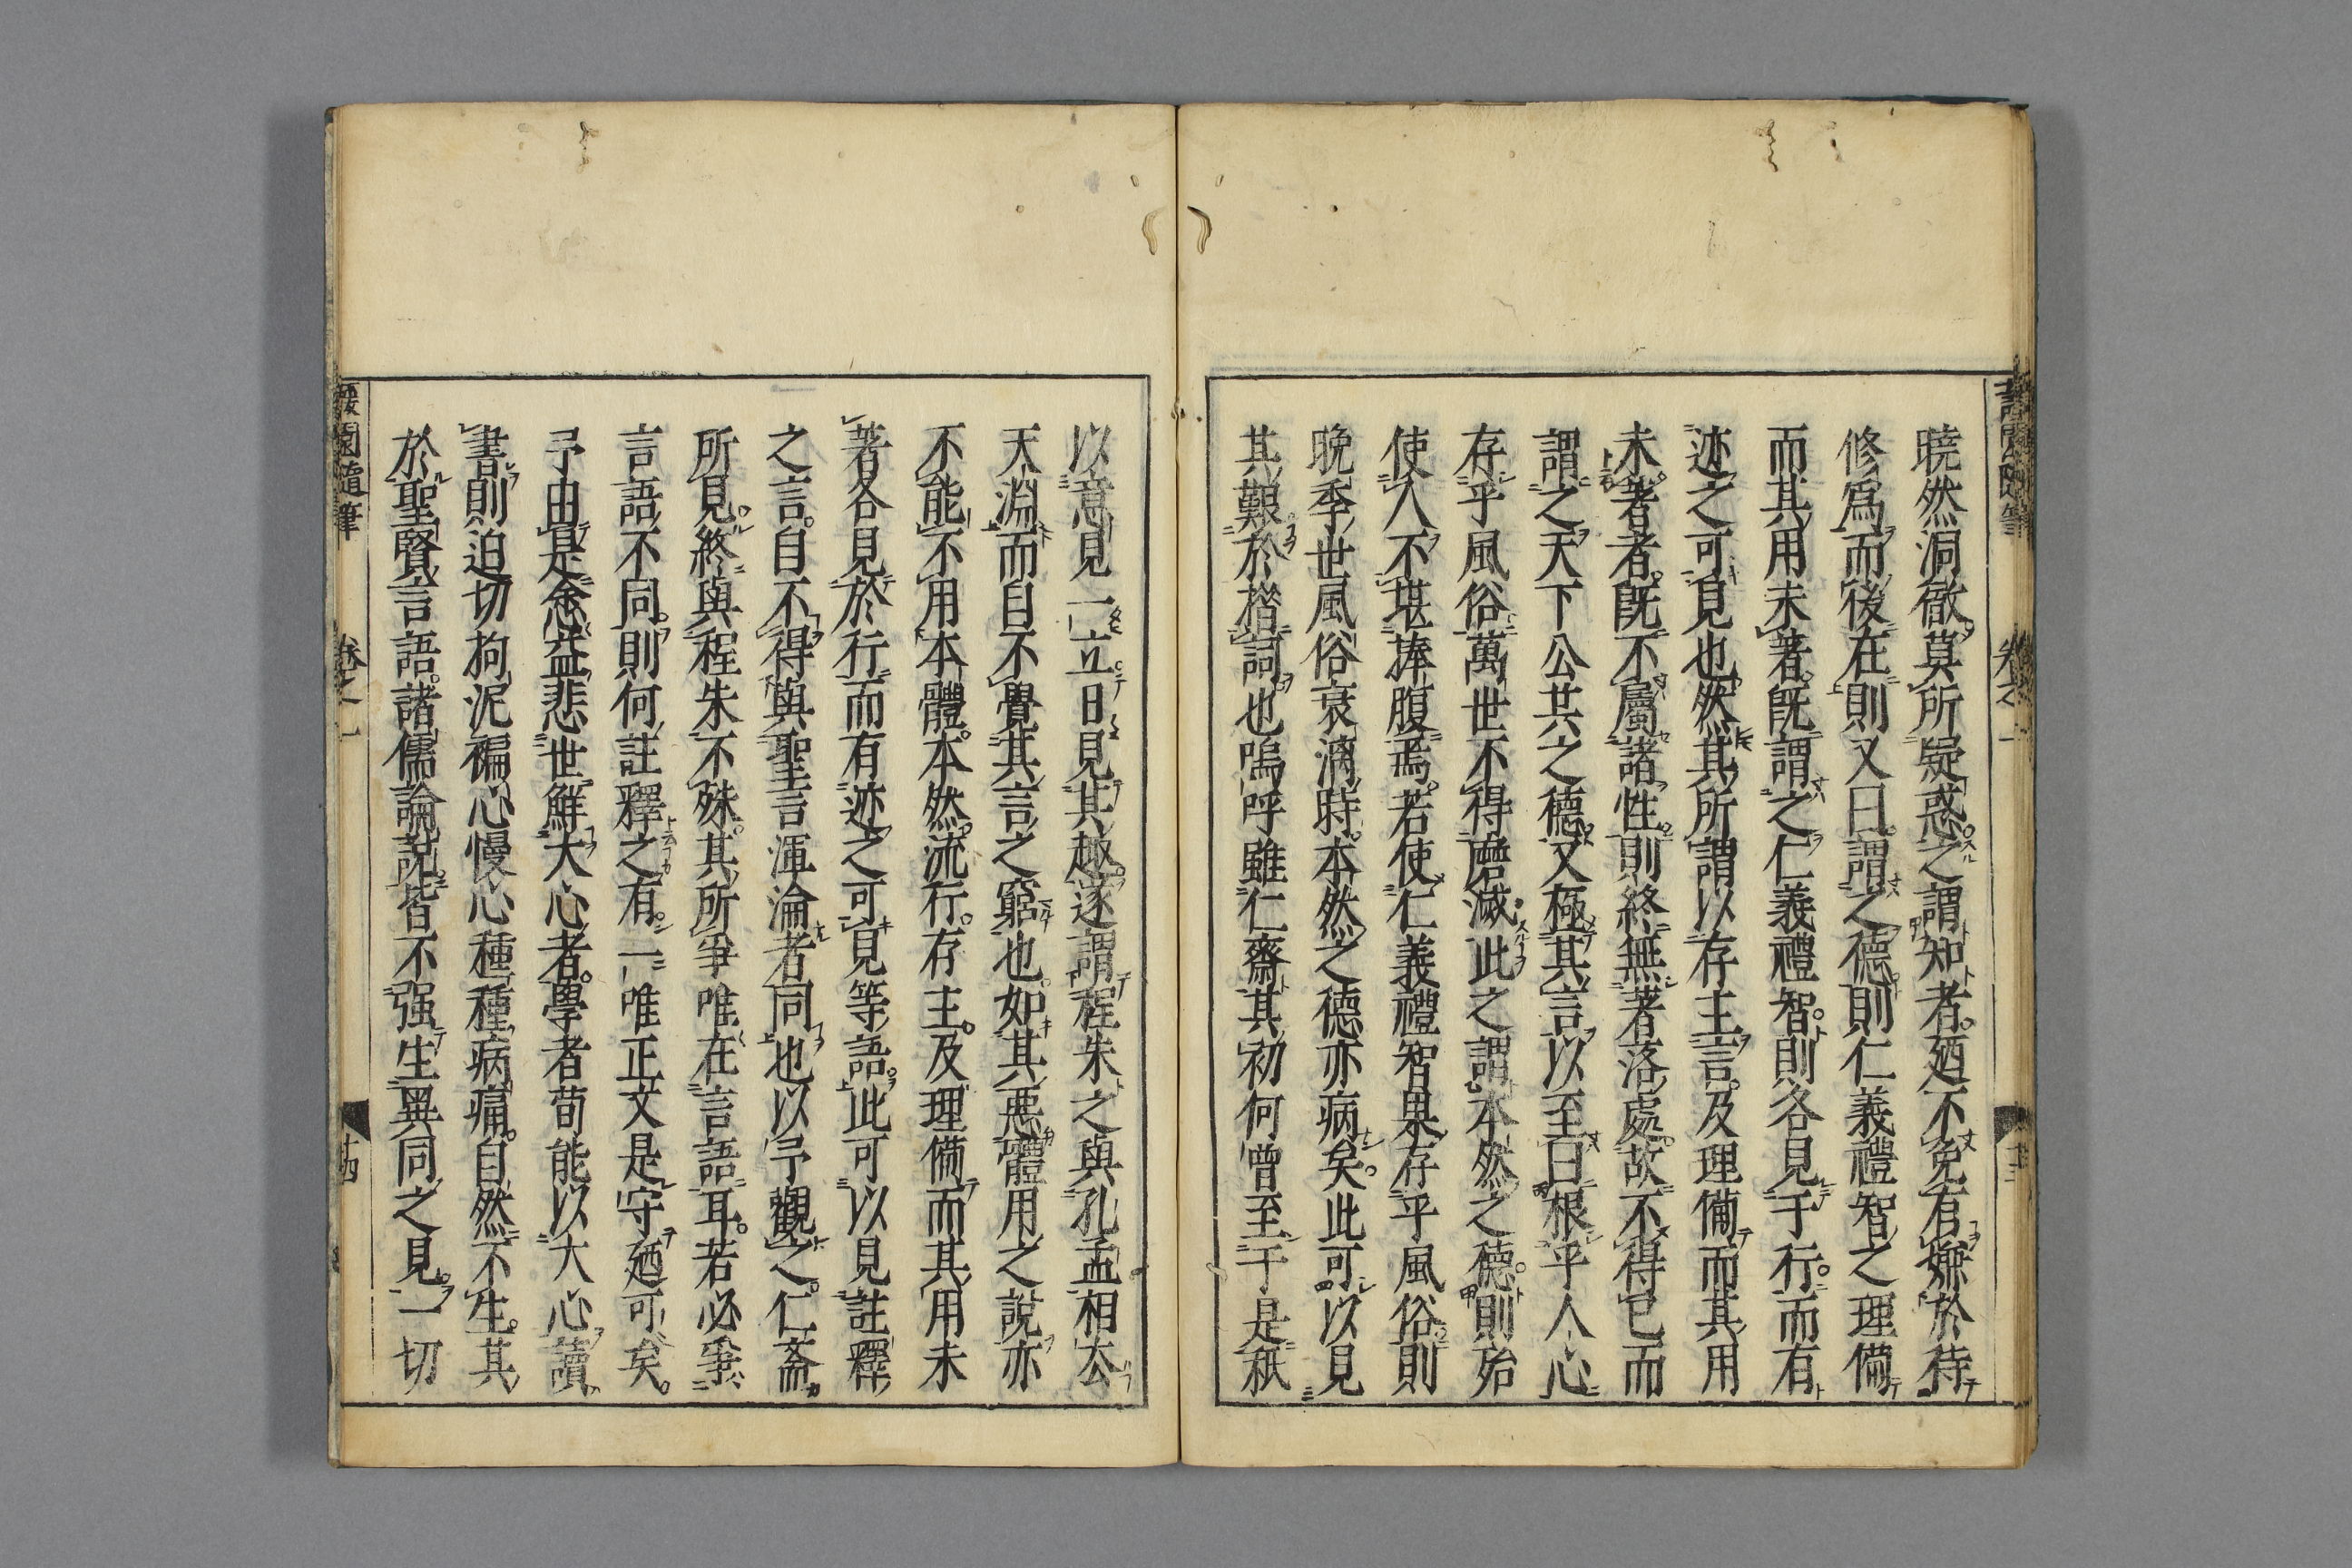 曉然洞徹莫所疑惑之謂知者廼不免有嫌於待
修爲而後在則又曰謂之德則仁義禮智之理備
而其用未著既謂之仁義禮智則各見于行而有
迹之可見也然其所謂以存主言及理備而其用
未著者既不屬諸性則終無著落處故不得已而
謂之天下公共之德又極其言以至曰根乎人心
存乎風俗萬世不得磨滅此之謂本然之德則殆
使人不堪捧腹焉若使仁義禮智果存乎風俗則
晚季世風俗衰漓時本然之德亦病矣此可以見
其艱於楷詞也嗚呼雖仁齋其初何曾至于是秖
以意見一立日見其趣遂謂程朱之與孔孟相太
天淵而自不覺其言之窮也如其惡體用之說亦
不能不用本體本然流行存主及理備而其用未
著各見於行而有迹之可見等語此可以見註釋
之言自不得與聖言渾淪者同也以予觀之仁斎
所見終與程朱不殊其所爭唯在言語耳若必爭
言語不同則何註釋之有一唯正文是守廼可矣
予由是念益悲世鮮大心者學者苟能以大心讀
書則迫切拘泥褊心慢心種種病痛自然不生其
於聖賢言語諸儒論說皆不强生異同之見一切
園隨筆
卷之一
十四